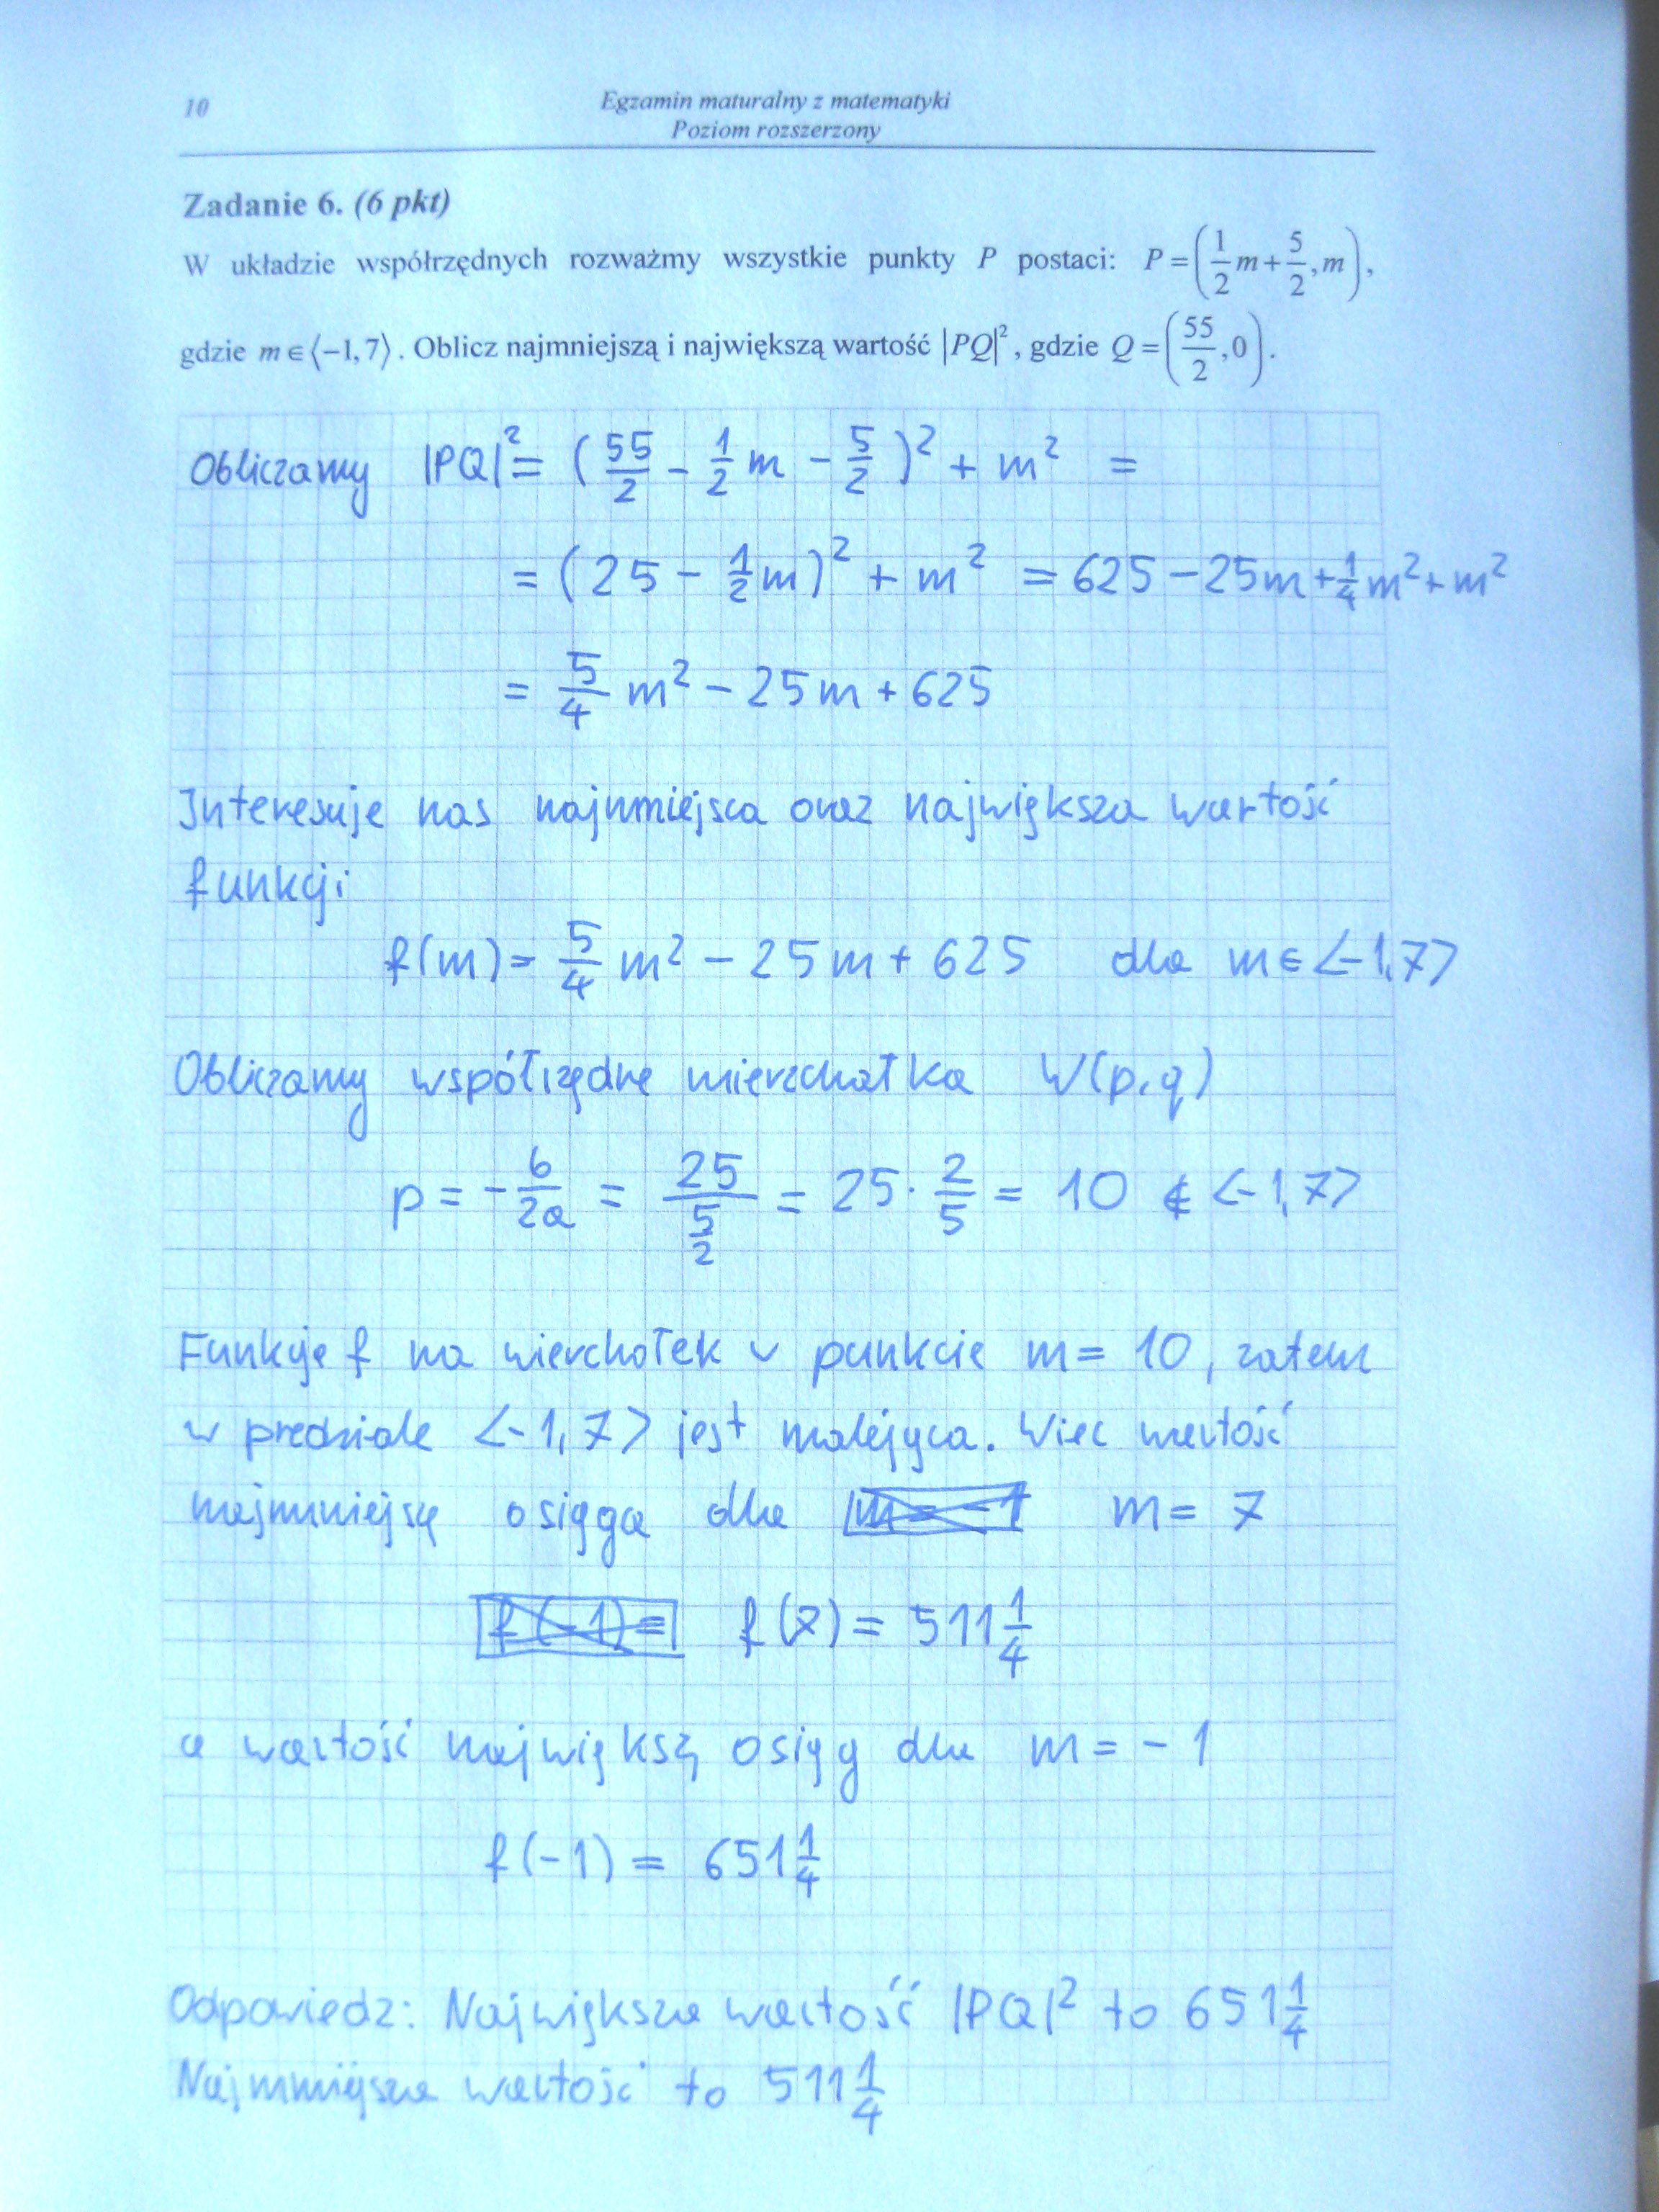 10
Egzamin maturalny z matematyki
Poziom rozszerzony
Zadanie 6. (6 pkt)
W układzie współrzędnych rozważmy wszystkie punkty P postaci: P = (1/2 m + 5/2, m),
gdzie m ∈ ⟨−1, 7⟩. Oblicz najmniejszą i największą wartość |PQ|², gdzie Q = (55/2, 0).
Obliczamy |PQ|² = (55/2 - 1/2 m - 5/2)² + m² =
= (25 - 1/2 m)² + m² = 625 - 25m + 1/4 m² + m²
= 5/4 m² - 25m + 625
Interesuje nas najmniejsca oraz największa wartość
funkcji
f(m) = 5/4 m² - 25m + 625 dla m ∈ <-1,7>
Obliczamy współrzędne wierzchołka W(p,q)
p = - b/2a = 25/(5/2) = 25 · 2/5 = 10 ∉ <-1,7>
Funkcje f ma wierchołek w punkcie m = 10, zatem
w predziale <-1,7> jest malejąca. Wiec wartość
najmniejszą osiąga dla m = -1 m = 7
f(-1) = f(7) = 511 1/4
a wartość największą osiąg dla m = -1
f(-1) = 651 1/4
Odpowiedz: Największa wartość |PQ|² to 651 1/4
Najmniejsza wartość to 511 1/4